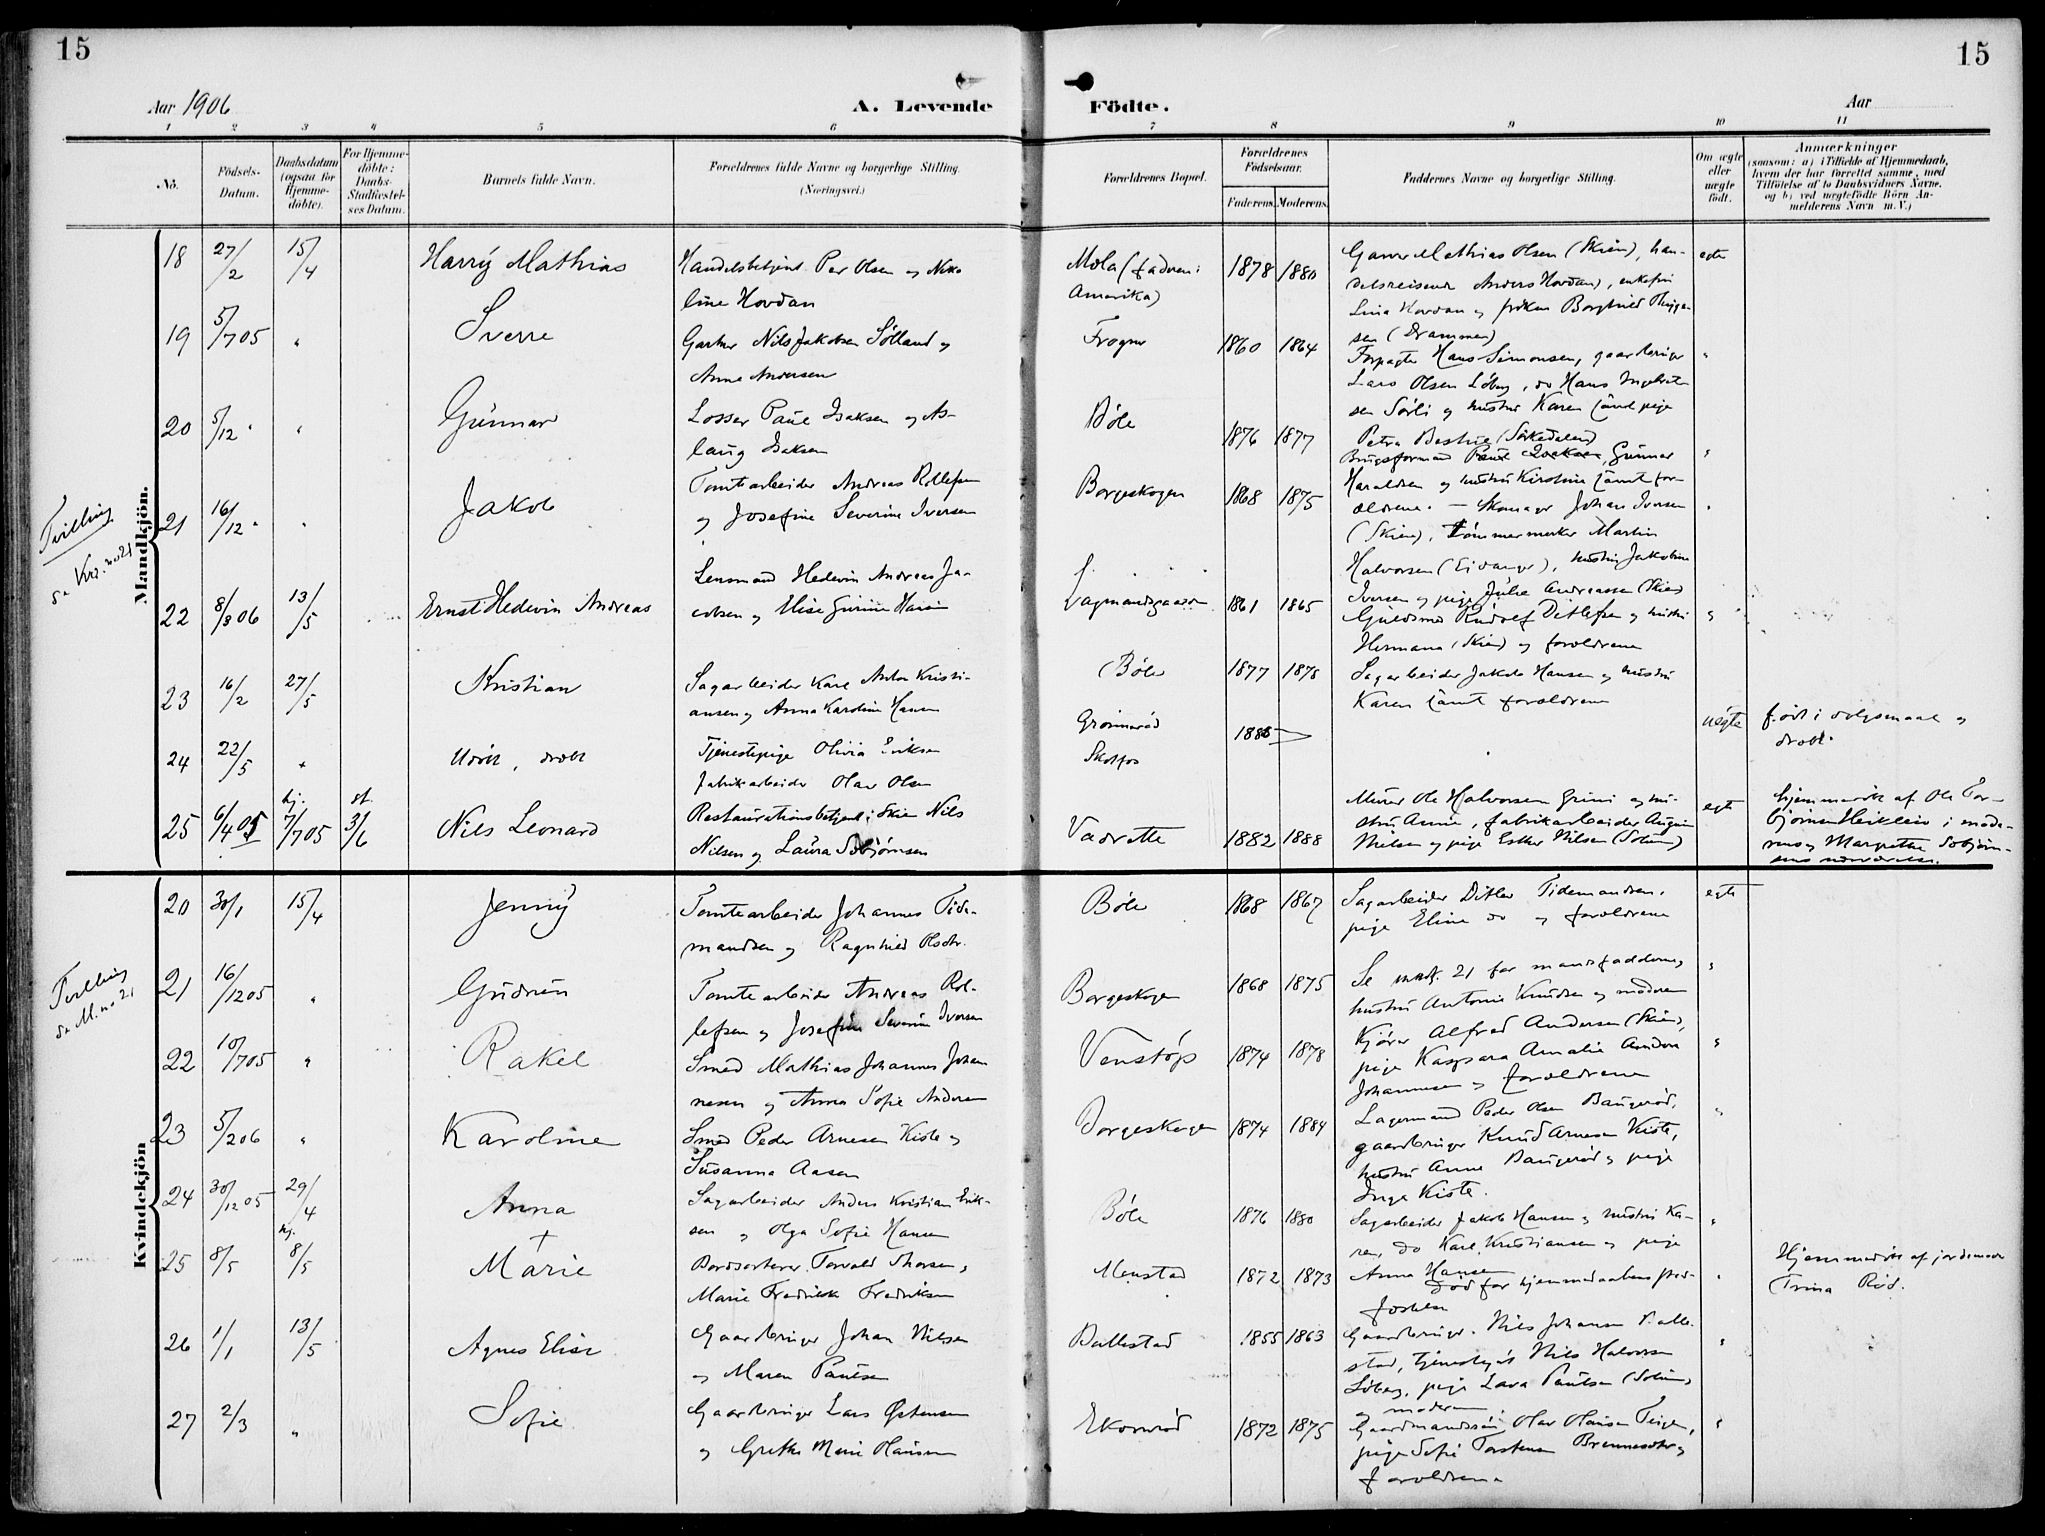 15
15
Aar 1906
A. Levende
Födte.
Aar
1 2 3 4 5 6 7 8 9 10 11
No.
Födsels-
Datum.
Daabsdatum
(ogsaa for
Hjemme-
döbte).
For Hjemme-
döbte:
Daabs-
Stadfæstel-
ses Datum.
Barnets fulde Navn.
Forældrenes fulde Navne og borgerlige Stilling.
(Næringsvei.)
Forældrenes Bopæl.
Forældrenes
Födselsaar.
Faderens. Moderens.
Faddernes Navne og borgerlige Stilling.
Om ægte
eller
uægte
födt.
Anmærkninger
(saasom: a) i Tilfælde af Hjemmedaab,
hvem der har forrettet samme, med
Tilföielse af to Daabsvidners Navne,
og b) ved uægtefödte Börn An-
melderens Navn m. V.)
Mandkjön.
18 27/2 15/4
Harry Mathias
Handelsbetjent Per Olsen og
line Hovdan
Mæla (faderen i
Amerika)
1878 1880
Mathias Olsen (Skien), han-
delsreisende Anders Hovdan, enkefru
Lina Hovdan og frøken Borghild
sen (Drammen)
egte
19 5/7 05 "
Sverre
Gartner Nils Jakobsen Sølland og
Anna Andersen
Frogner
1860 1864
Forpagter Hans Simonsen, gaardbruger
Lars Olsen Löberg, do Hans
sen Sørli og hustru Karen samt pige
Petra (Sørkedalen)
"
20 5/12 " "
Gunnar
Losser Paul Isaksen og As-
laug Isaksen
Böle
1876 1877
Brugsformand Gunnar
Haraldsen og hustru Kirstine samt for-
ældrene.
"
Tvilling
se Kvk. no 21
21 16/12 " "
Jakob
Tomtearbeider Andreas Rollefsen
og Josefine Severine Iversen
Borgeskogen
1868 1875
Skomager Johan Iversen
(Skien), Tömmermerker Martin
Halvorsen (Eidanger), hustru Jakobine
Iversen og pige Julie Andreassen (Skien)
"
22 8/3 06 13/5
Ernst Hedevin Andreas
Lensmand Hedevin Andreas Ja-
cobsen og Elise
Lagmandsgaarden
1861 1865
Guldsmed Rudolf Ditlefsen og hustru
Hermana (Skien) og forældrene
"
23 16/2 27/5
Kristian
Sagarbeider Karl Anton Kristi-
ansen og Anna Karoline Hansen
Böle
1877 1878
Sagarbeider Jakob Hansen og hustru
Karen samt forældrene
24 22/5 +
Udöbt, dødt
Tjenestepige Olivia Eriksen
Fabrikarbeider Olav Olsen
Skotfos
uegte
født i dølgsmaal og
dræbt.
25 6/4 05 hj. 7/7 05 st. 3/6
Nils Leonard
Restaurationsbetjent i Skien Nils
Nilsen og Laura Sobjörnsen
Vadrette
1882 1888
Murer Ole Halvorsen Grini og hu-
stru Anne, fabrikarbeider August
Nielsen og pige Esther Nilsen (Solum)
egte
hjemmedöbt af Ole Tor-
björnsen i mode-
rens og Margrethe Sobjörn-
sens nærværelse.
Kvindekjön
20 30/1 15/4
Jenny
Tomtearbeider Johannes Tide-
mandsen og Ragnhild Olsdtr.
Böle
1868 1867
Sagarbeider Ditlev Tidemandsen,
pige Eline do og forældrene
egte
Tvilling
se M. no 21
21 16/12 05 "
Gudrun
Tomtearbeider Andreas Rol-
lefsen og Josefine Severine Iversen
Borgeskogen
1868 1875
Se 21 for mandsfadderne,
hustru Antonie Knudsen og moderen
"
22 10/7 05 "
Rakel
Smed Mathias Johannes Johan
nesen og Anna Sofie Andersen
Venstöp
1874 1878
Kjörer Alfred Andersen (Skien),
pige Kaspara Amalie
Johannesen og forældrene
"
23 5/2 06 "
Karoline
Smed Peder Arnesen Kiste og
Susanna Aasen
Borgeskogen
1874 1884
Lagermand Peder Olsen Baugeröd,
gaardbruger Knud Arnesen Kiste,
hustru Anne Baugeröd og pige
Inga Kiste.
"
24 30/12 05 29/4
Anna
Sagarbeider Anders Kristian Erik-
sen og Olga Sofie Hansen
Böle
1876 1880
Sagarbeider Jakob Hansen og hustru Ka-
ren, do Karl Kristiansen og pige
Anna Hansen
"
25 8/5 hj. 8/5
+
Marie
Bordsorterer Torvald Thorsen og
Marie Fredrikke Fredriksen
Menstad
1872 1873
Död før hjemmedaabens stad-
fæstelse
"
Hjemmedöbt af jordemoder
Trina Röd.
26 1/1 13/5
Agnes Elise
Gaardbruger Johan Nilsen
og Maren Paulsen
Ballestad
1855 1863
Gaardbruger Nils Johansen Balle-
stad, tjenestegut Nils Halvorsen
Löberg, pige Lava Paulsen (Solum)
og moderen
"
27 2/3 "
Sofie
Gaardbruger Lars Østensen
og Grethe Marie Hansen
Ekornröd
1872 1875
Gaardmandssön Olav Hansen Teigen,
pige Sofie Torstensen og
forældrene
"